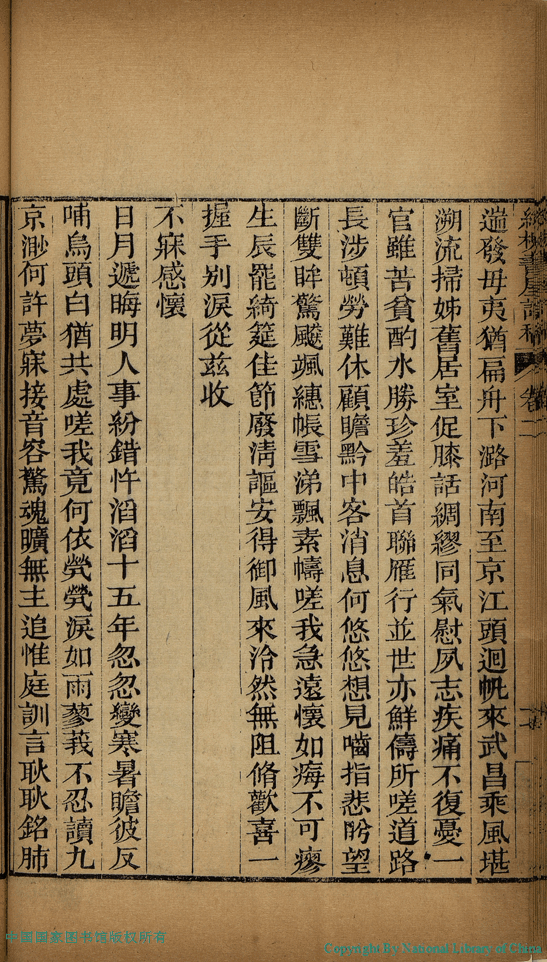 遄發毋夷猶扁舟下潞河南至京江頭迴帆來武昌乘風堪
溯流掃姊舊居室促膝話綢繆同氣慰夙志疾痛不復憂一
官雖苦貧酌水勝珍羞皓首聯雁行並世亦鮮儔所嗟道路
長涉頓勞難休顧瞻黔中客消息何悠悠想見嚙指悲盻望
斷雙眸驚飈颯繐帳雪涕飄素幬嗟我急遠懷如痗不可瘳
生辰罷綺筵佳節廢清謳安得御風來泠然無阻脩歡喜一
握手别淚從兹收
不寐感懷
日月遞晦明人事紛錯忤滔滔十五年忽忽變寒暑瞻彼反
哺烏頭白猶共處嗟我竟何依煢煢淚如雨蓼莪不忍讀九
京渺何許夢寐接音容驚魂曠無主追惟庭訓言耿耿銘肺
書屋詩稿 卷二
中国国家图书馆版权所有
Copyright By National Library of China